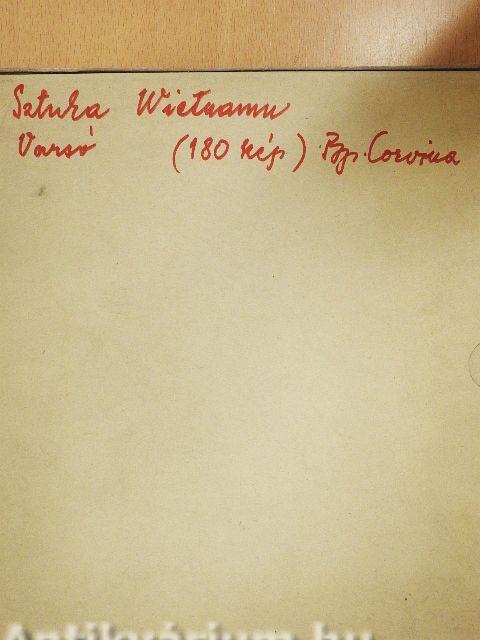 Sztuka Wietnamu
Varsó (180 kép) Bp. Corvina
Antikvárium.hu